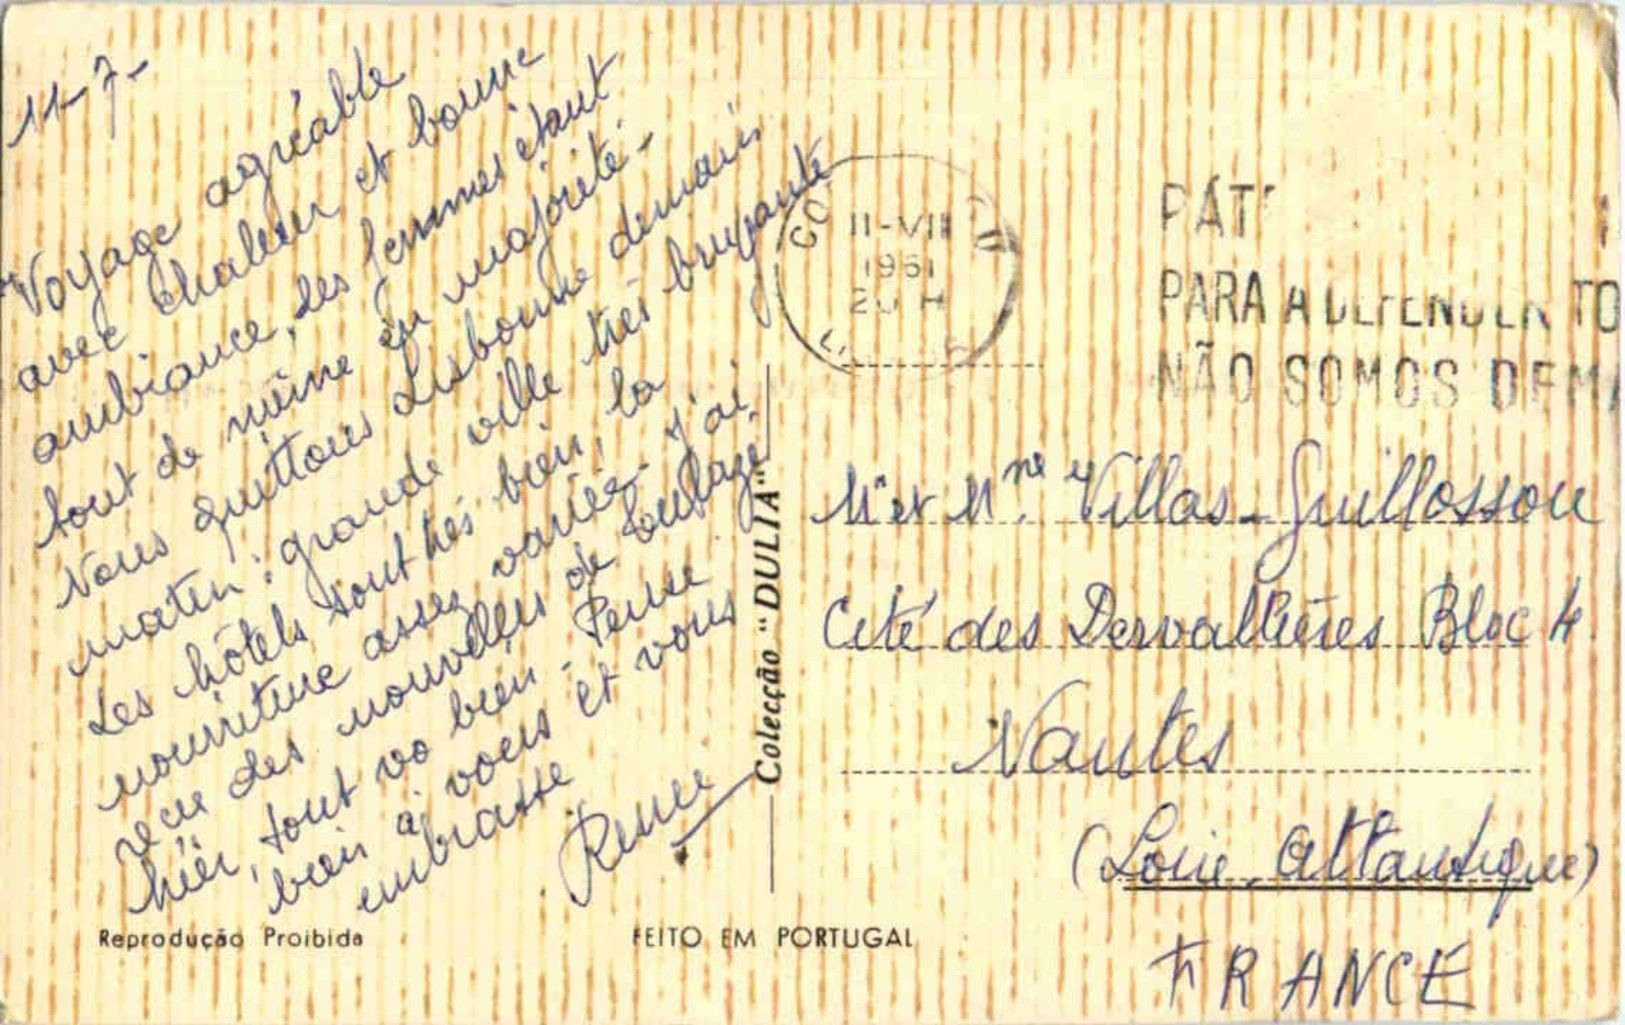 11-7-
Voyage agréable
avec chaleur et bonne
ambiance, les femmes étant
tout de même en majorité.
Nous quittons Lisbonne demain
matin : grande ville très bruyante
Les hôtels sont très bien, la
nourriture assez variée. J'ai
reçu des nouvelles de
hier, tout va bien. Pense
bien à vous et vous
embrasse
Renée
Reprodução Proibida
FEITO EM PORTUGAL
Colecção "DULIA"
CO
II-VII
1961
20 H
PÁT
PARA A DEFENDER TO
NÃO SOMOS DEMA
Mr et Mme Villas-Guillossou
Cité des Dervallières Bloc 4.
Nantes
(Loire-Atlantique)
FRANCE